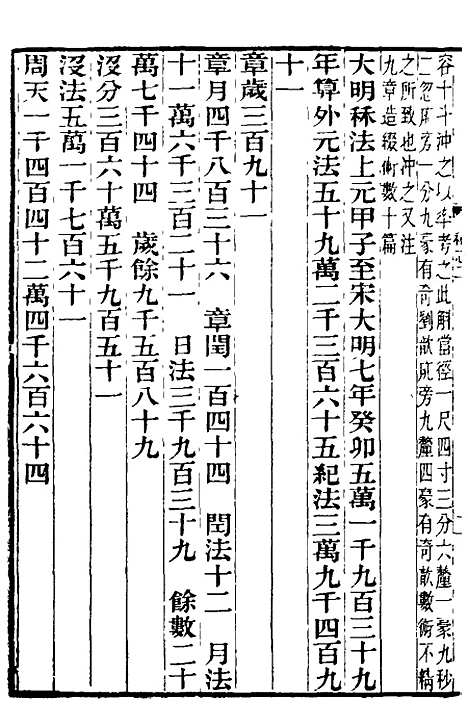 容十斗沖之以率考之此斛當徑一尺四寸三分六釐一毫九秒
二忽庣旁一分九毫有奇劉歆庣旁九釐四毫有奇歆數術不精
之所致也沖之又注
九章造綴術數十篇
大明秝法上元甲子至宋大明七年癸卯五萬一千九百三十九
年算外元法五十九萬二千三百六十五紀法三萬九千四百九
十一
章歲三百九十一
章月四千八百三十六 章閏一百四十四 閏法十二 月法
十一萬六千三百二十一 日法三千九百三十九 餘數二十
萬七千四十四 歲餘九千五百八十九
沒分三百六十萬五千九百五十一
沒法五萬一千七百六十一
周天一千四百四十二萬四千六百六十四